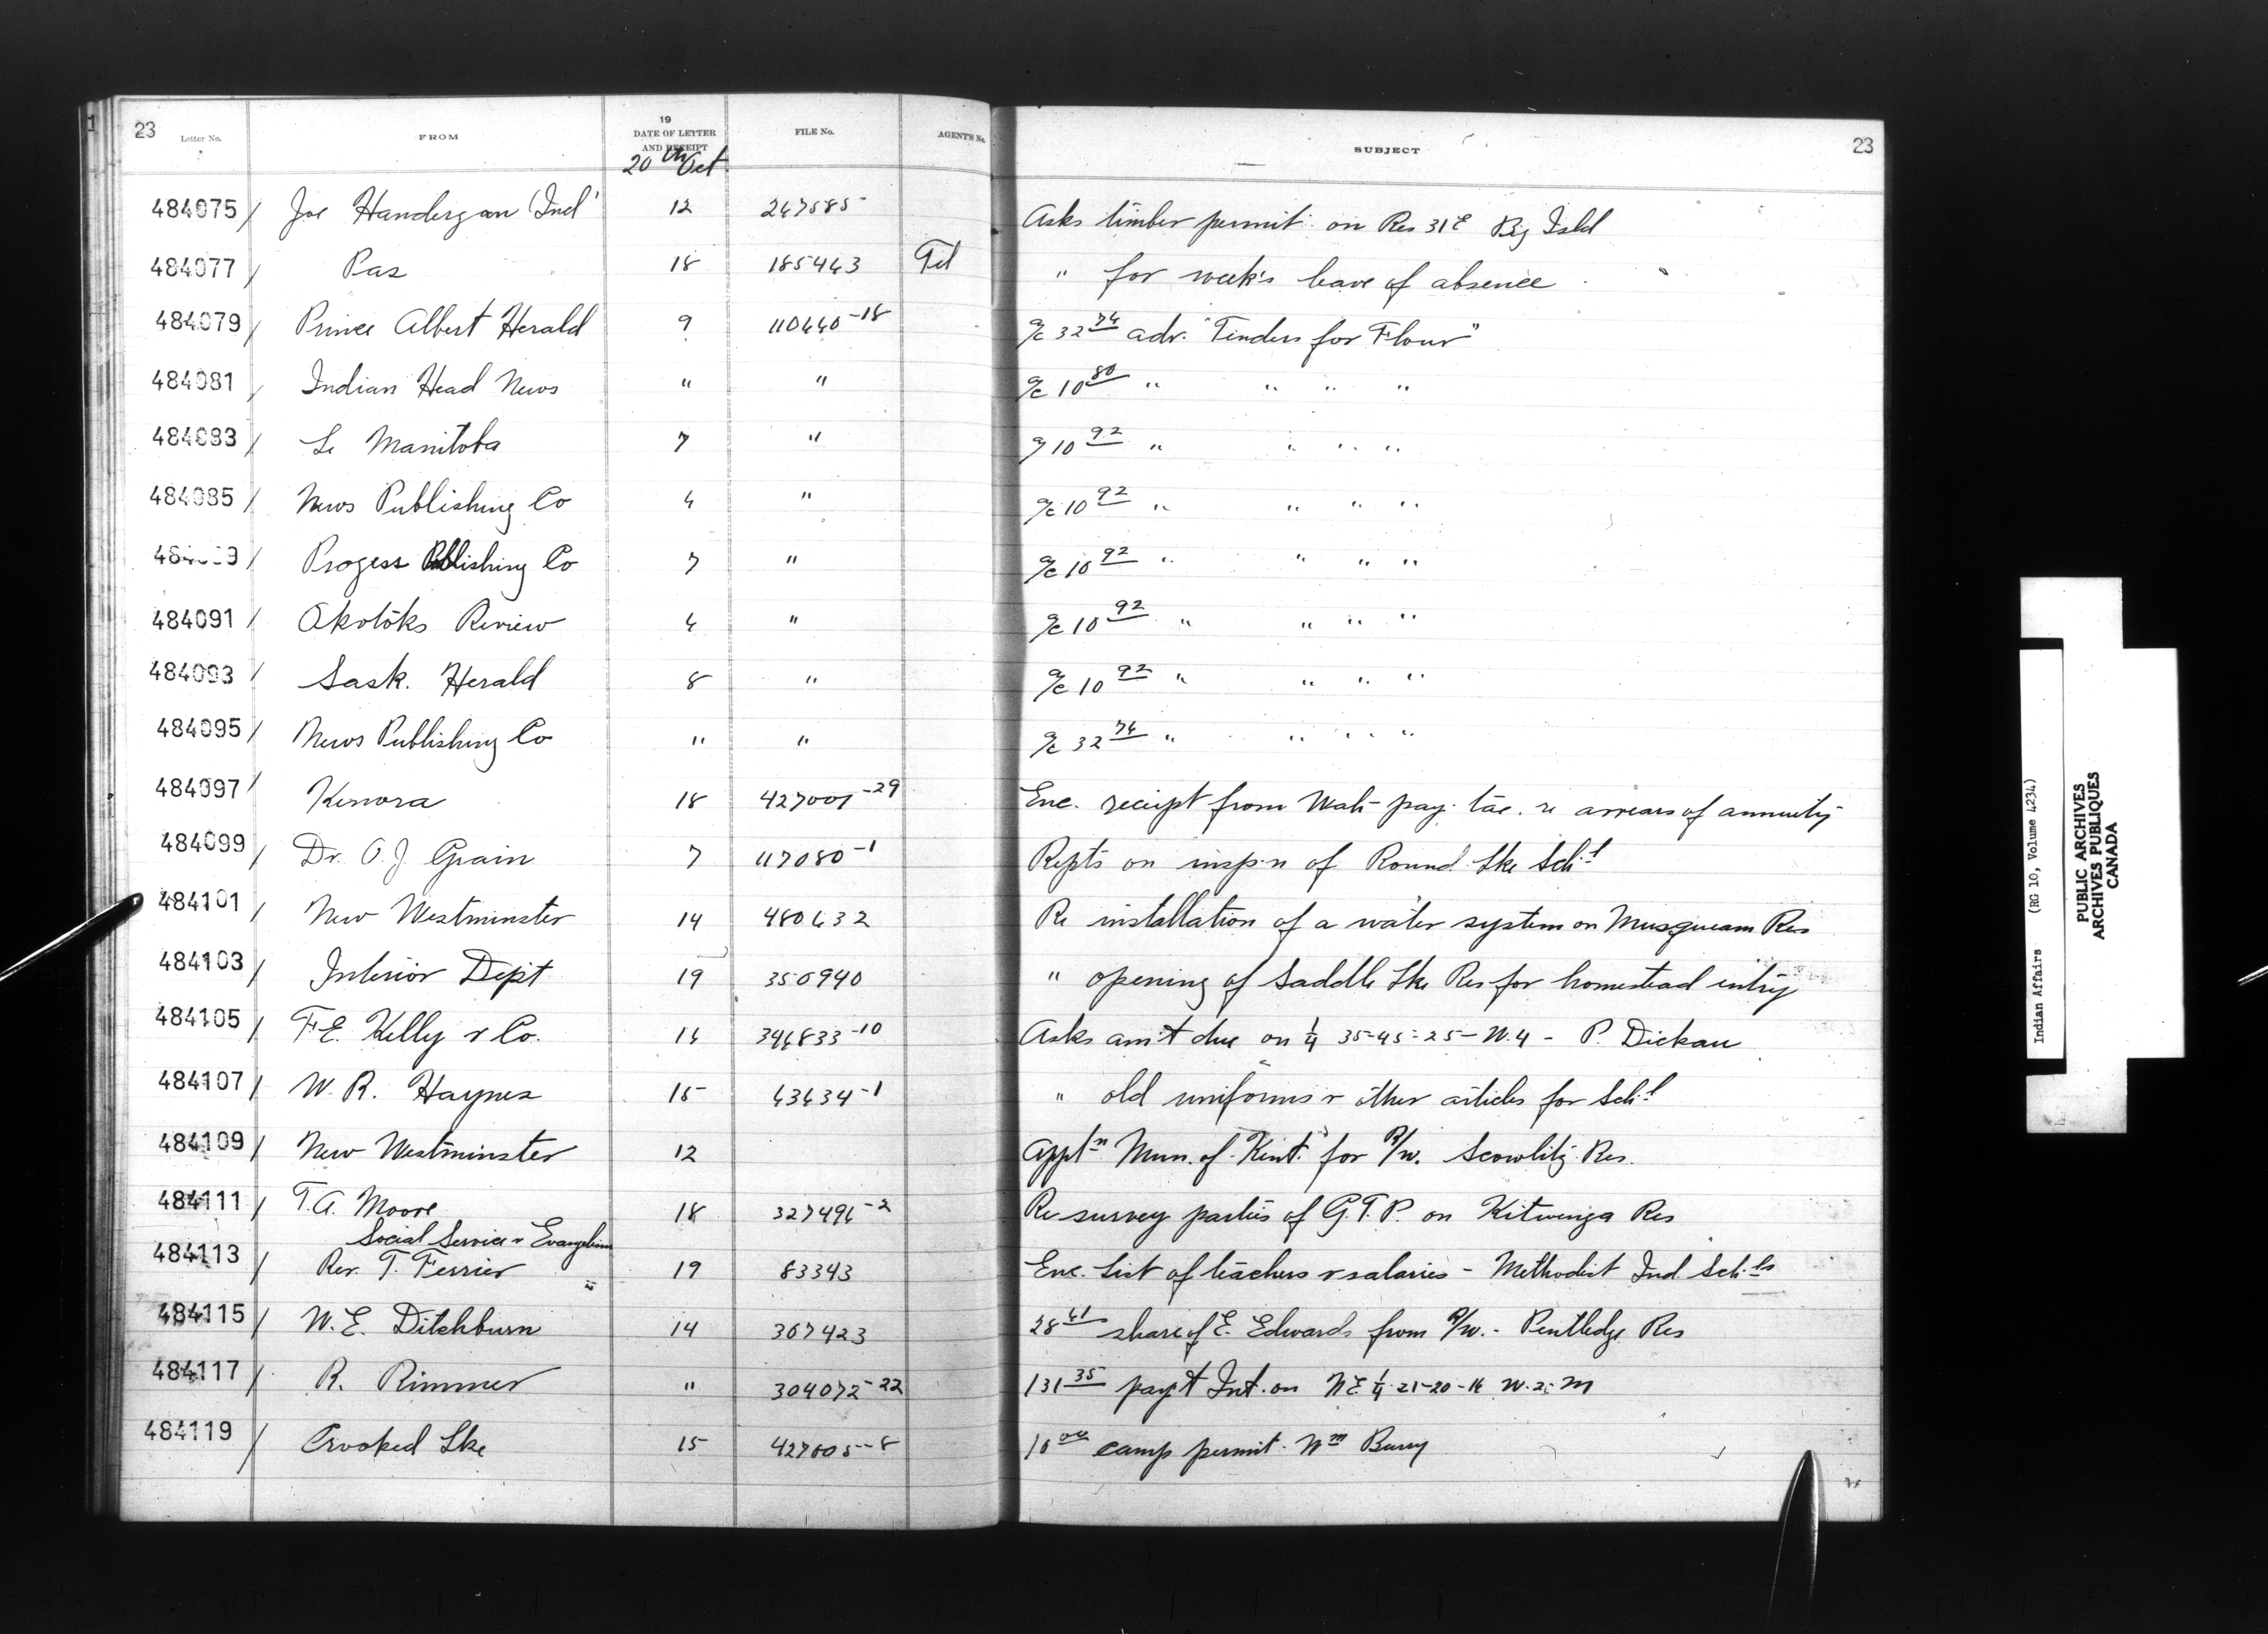 23 Letter No. FROM 19 DATE OF LETTER AND RECEIPT FILE No. AGENT'S No. SUBJECT 23
20th Oct
484075 / Joe Handergan (Ind) 12 247585 Asks timber permit on Res 31E Big Isld
484077 / Pas 18 185443 Tel " for week's leave of absence
484079 / Prince Albert Herald 9 110440-18 a/c 32 74 adv. "Tenders for Flour"
484081 / Indian Head News " " a/c 10 80 " " " "
484083 / Le Manitoba 7 " a/c 10 92 " " " "
484085 / News Publishing Co 4 " a/c 10 92 " " " "
/ Progess Publishing Co 7 " a/c 10 92 " " " "
484091 / Okotoks Review 4 " a/c 10 92 " " " "
484093 / Sask. Herald 8 " a/c 10 92 " " " "
484095 / News Publishing Co " " a/c 32 74 " " " "
484097 / Kenora 18 427001-29 Enc. receipt from re arrears of annuity
484099 / Dr. O. J. Grain 7 117080-1 Repts on insp'n of Round Lke Sch'l
484101 / New Westminster 14 480432 Re installation of a water system on Musqueam Res
484103 / Interior Dept 19 350940 " opening of Saddle Lke Res for homestead entry
484105 / F.E. Kelly & Co. 14 344833-10 Asks am't due on 1/4 35-45-25-W.4 - P. Dickau
484107 / W. R. Haynes 15 43434-1 " old uniforms & other articles for Sch'l
484109 / New Westminster 12 Appt'n Mun. of "Kent" for R/w. Scowlitz Res.
484111 / T. A. Moore 18 327496-2 Re survey parties of G.T.P. on Kitwenga Res
Social Service & Evangelism
484113 / Rev. T. Ferrier 19 83343 Enc. List of teachers & salaries - Methodist Ind. Sch'ls
484115 / W. E. Ditchburn 14 367423 28 41 share of E. Edwards from R/w. - Pentledge Res
484117 / R. Rimmer " 304072-22 131 35 pay't Int. on N E 1/4 21-20-16 W. 2. M
484119 / Crooked Lke 15 427005-8 10 00 camp permit Wm Burry
Indian Affairs (RG 10, Volume 4234)
PUBLIC ARCHIVES
ARCHIVES PUBLIQUES
CANADA